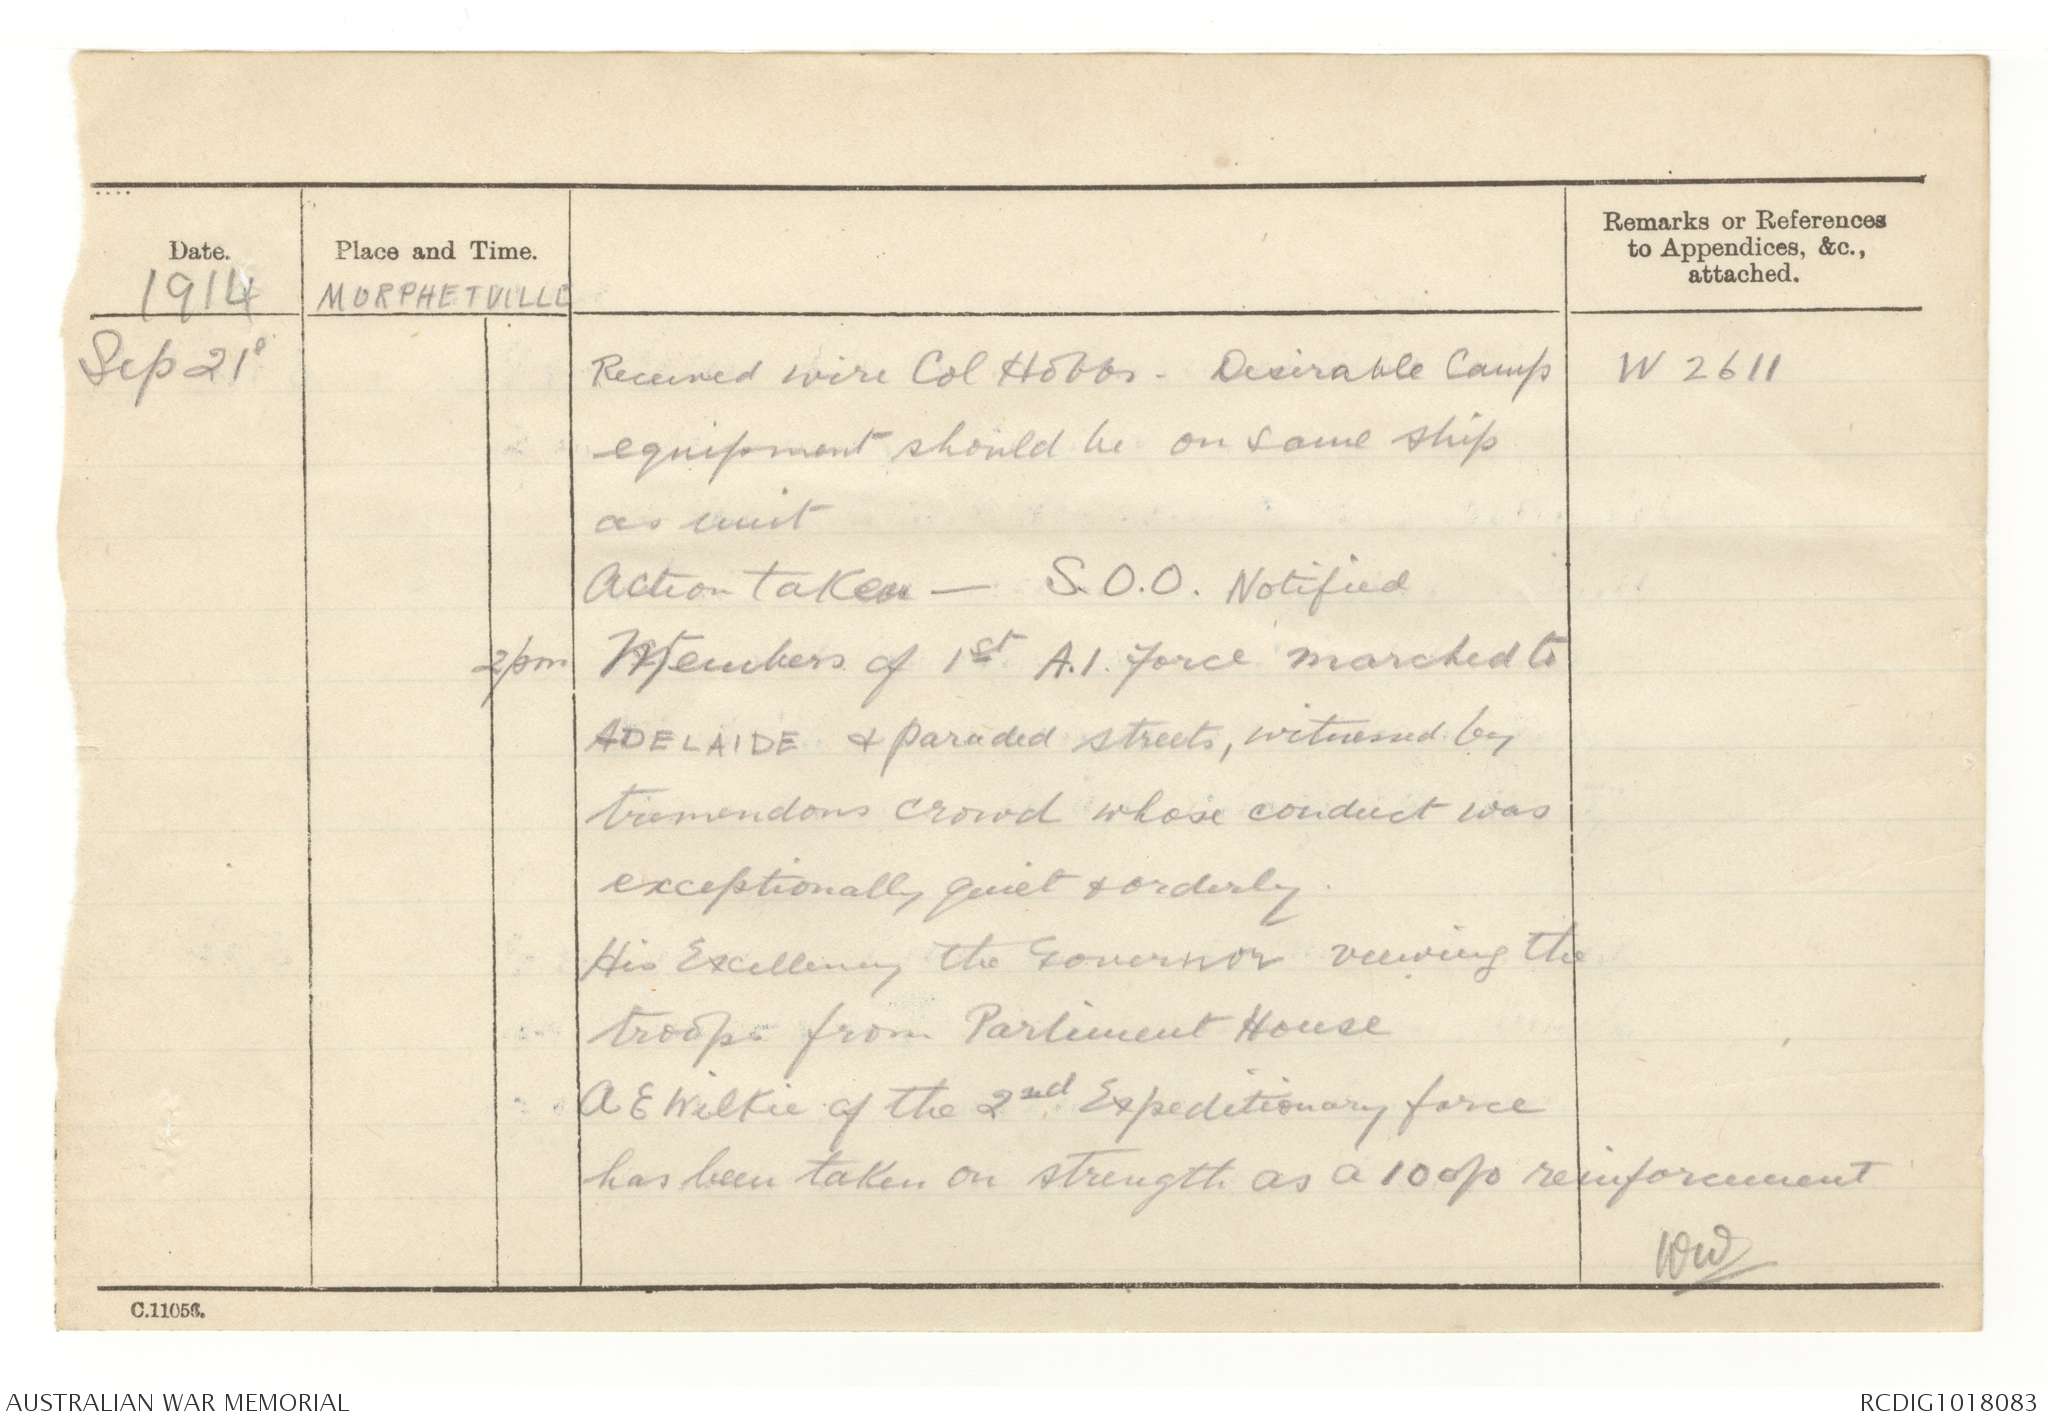 Date.
Place and Time.
Remarks or References
to Appendices, &c.,
attached.
1914
MORPHETVILLE
Sep 21
Received wire Col Hobbs - Desirable Camp
W 2611
equipment should be on same ship
as unit
Action taken — S.O.O. Notified
2pm
Members of 1st A.I. Force marched to
ADELAIDE & paraded streets, witnessed by
tremendous crowd whose conduct was
exceptionally quiet & orderly.
His Excellency the Governor viewing the
troops from Parliment House
A E Wilkie of the 2nd Expeditionary force
has been taken on strength as a 10 o/o reinforcement
WW
C.11056.
AUSTRALIAN WAR MEMORIAL
RCDIG1018083